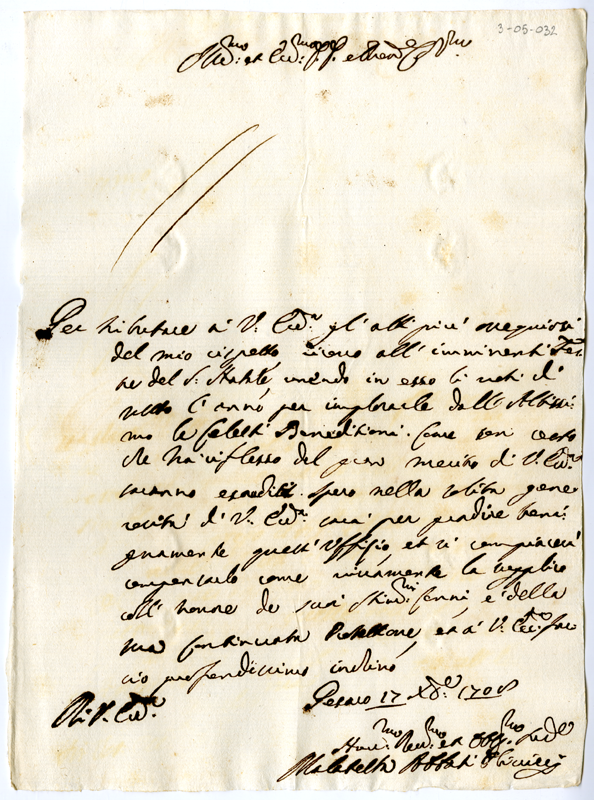 3-05-032
Ill:mo et Ecc:mo
Per tributare à V. Ecc:a gl'atti più ossequiosi
del mio rispetto all'imminenti Fes:
te del S. Natale, unendo in esso li voti di
tutto l'anno per implorarle dall'Altissi:
mo le Celesti Beneditioni. Come son certo
che ha riflesso del gran merito di V. Ecc:a
saranno esauditi. spero nella solita gene:
rosità di V. Ecc:a sarà per gradire beni:
gnamente quest'Uffitio, et si compiacerà
compensarlo come vivamente la supplico
coll'honore de suoi Stim:mi cenni, e della
sua continuata Protettione, et à V. Ecc:a fac
cio profondissimo inchino
Di V. Ecc:a
Pesaro 17 Xb:e 1708
Hum:mo et Obb:mo
Malatesta Abbati